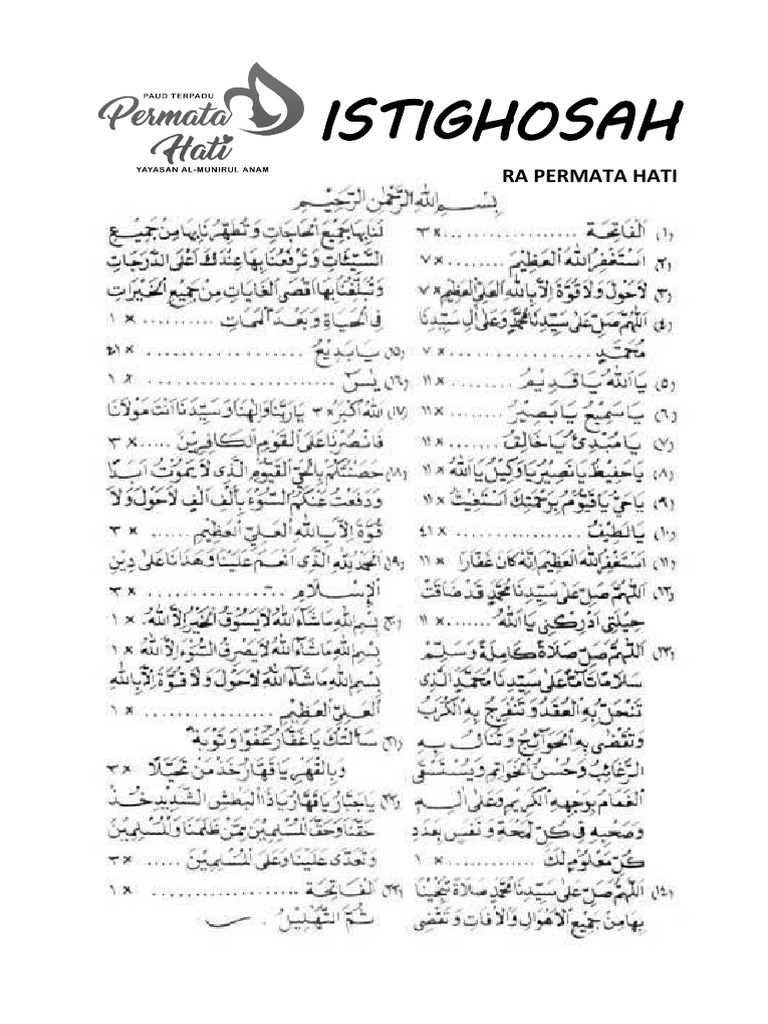 PAUD TERPADU
Permata
Hati
YAYASAN AL-MUNIRUL ANAM
ISTIGHOSAH
RA PERMATA HATI
بِسْمِ اللهِ الرَّحْمٰنِ الرَّحِيْمِ
(١) اَلْفَاتِحَة .................... × ٣
(٢) اَسْتَغْفِرُ اللهَ الْعَظِيْمَ ......... × ٧
(٣) لَاحَوْلَ وَلَا قُوَّةَ اِلَّا بِاللهِ الْعَلِيِّ الْعَظِيْمِ × ٧
(٤) اَللّٰهُمَّ صَلِّ عَلَى سَيِّدِنَا مُحَمَّدٍ وَعَلَى اٰلِ سَيِّدِنَا
مُحَمَّدٍ .................... × ٧
(٥) يَا اَللهُ يَا قَدِيْمُ ............ × ١١
(٦) يَا سَمِيْعُ يَا بَصِيْرُ ......... × ١١
(٧) يَا مُبْدِئُ يَا خَالِقُ ......... × ١١
(٨) يَا حَفِيْظُ يَا نَصِيْرُ يَا وَكِيْلُ يَا اَللهُ × ١١
(٩) يَا حَيُّ يَا قَيُّوْمُ بِرَحْمَتِكَ اَسْتَغِيْثُ × ١١
(١٠) يَا لَطِيْفُ .................. × ٤١
(١١) اَسْتَغْفِرُ اللهَ الْعَظِيْمَ اِنَّهُ كَانَ غَفَّارًا × ١١
(١٢) اَللّٰهُمَّ صَلِّ عَلَى سَيِّدِنَا مُحَمَّدٍ قَدْ ضَاقَتْ
حِيْلَتِيْ اَدْرِكْنِيْ يَا اَللهُ ........ × ١١
(١٣) اَللّٰهُمَّ صَلِّ صَلَاةً كَامِلَةً وَسَلِّمْ
سَلَامًا تَامًّا عَلَى سَيِّدِنَا مُحَمَّدٍ الَّذِيْ
تَنْحَلُّ بِهِ الْعُقَدُ وَتَنْفَرِجُ بِهِ الْكُرَبُ
وَتُقْضَى بِهِ الْحَوَائِجُ وَتُنَالُ بِهِ
الرَّغَائِبُ وَحُسْنُ الْخَوَاتِمِ وَيُسْتَسْقَى
الْغَمَامُ بِوَجْهِهِ الْكَرِيْمِ وَعَلَى اٰلِهِ
وَصَحْبِهِ فِيْ كُلِّ لَمْحَةٍ وَنَفَسٍ بِعَدَدِ
كُلِّ مَعْلُوْمٍ لَكَ ............ × ١
(١٤) اَللّٰهُمَّ صَلِّ عَلَى سَيِّدِنَا مُحَمَّدٍ صَلَاةً تُنْجِيْنَا
بِهَا مِنْ جَمِيْعِ الْاَهْوَالِ وَالْاٰفَاتِ وَتَقْضِيْ
لَنَا بِهَا جَمِيْعَ الْحَاجَاتِ وَتُطَهِّرُنَا بِهَا مِنْ جَمِيْعِ
السَّيِّئَاتِ وَتَرْفَعُنَا بِهَا عِنْدَكَ اَعْلَى الدَّرَجَاتِ
وَتُبَلِّغُنَا بِهَا اَقْصَى الْغَايَاتِ مِنْ جَمِيْعِ الْخَيْرَاتِ
فِي الْحَيَاةِ وَبَعْدَ الْمَمَاتِ .......... × ١
(١٥) يَا بَدِيْعُ .................. × ٤١
(١٦) يٰسٓ ...................... × ١
(١٧) اَللهُ اَكْبَرُ × ٣ يَا رَبَّنَا وَاِلٰهَنَا وَسَيِّدَنَا اَنْتَ مَوْلَانَا
فَانْصُرْنَا عَلَى الْقَوْمِ الْكَافِرِيْنَ ..... × ٣
(١٨) حَصَّنْتُكُمْ بِالْحَيِّ الْقَيُّوْمِ الَّذِيْ لَا يَمُوْتُ اَبَدًا
وَدَفَعْتُ عَنْكُمُ السُّوْءَ بِأَلْفِ اَلْفِ لَاحَوْلَ وَلَا
قُوَّةَ اِلَّا بِاللهِ الْعَلِيِّ الْعَظِيْمِ ........ × ٣
(١٩) اَلْحَمْدُ لِلّٰهِ الَّذِيْ اَنْعَمَ عَلَيْنَا وَهَدَانَا عَلَى دِيْنِ
الْاِسْلَامِ .................. × ٣
(٢٠) بِسْمِ اللهِ مَاشَاءَ اللهُ لَا يَسُوْقُ الْخَيْرَ اِلَّا اللهُ. × ١
بِسْمِ اللهِ مَاشَاءَ اللهُ لَا يَصْرِفُ السُّوْءَ اِلَّا اللهُ × ١
بِسْمِ اللهِ مَاشَاءَ اللهُ لَاحَوْلَ وَلَا قُوَّةَ اِلَّا بِاللهِ
الْعَلِيِّ الْعَظِيْمِ ................ × ١
(٢١) سَأَلْتُكَ يَا غَفَّارُ عَفْوًا وَتَوْبَةً
وَبِالْقَهْرِ يَا قَهَّارُ خُذْ مَنْ تَحَيَّلَا × ٣
(٢٢) يَا جَبَّارُ يَا قَهَّارُ يَا ذَا الْبَطْشِ الشَّدِيْدِ خُذْ
حَقَّنَا وَحَقَّ الْمُسْلِمِيْنَ مِمَّنْ ظَلَمَنَا وَالْمُسْلِمِيْنَ
وَتَعَدَّى عَلَيْنَا وَعَلَى الْمُسْلِمِيْنَ ..... × ٣
(٢٣) اَلْفَاتِحَة .................. × ١
ثُمَّ التَّهْلِيْلُ .